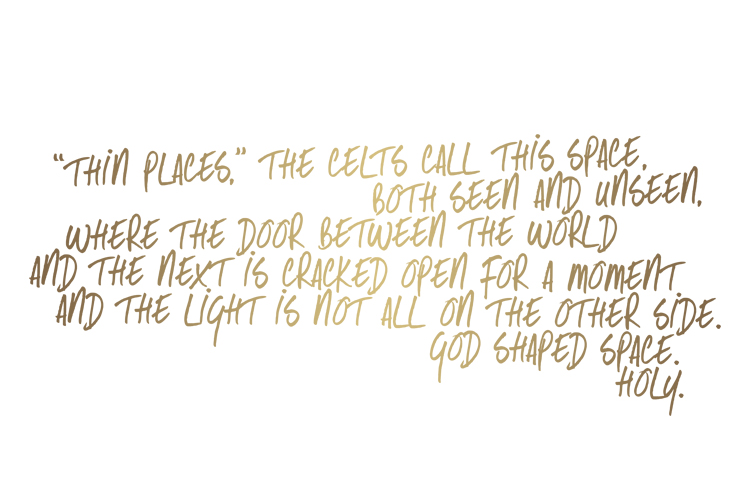 “THIN PLACES,” THE CELTS CALL THIS SPACE,
BOTH SEEN AND UNSEEN,
WHERE THE DOOR BETWEEN THE WORLD
AND THE NEXT IS CRACKED OPEN FOR A MOMENT
AND THE LIGHT IS NOT ALL ON THE OTHER SIDE.
GOD SHAPED SPACE.
HOLY.